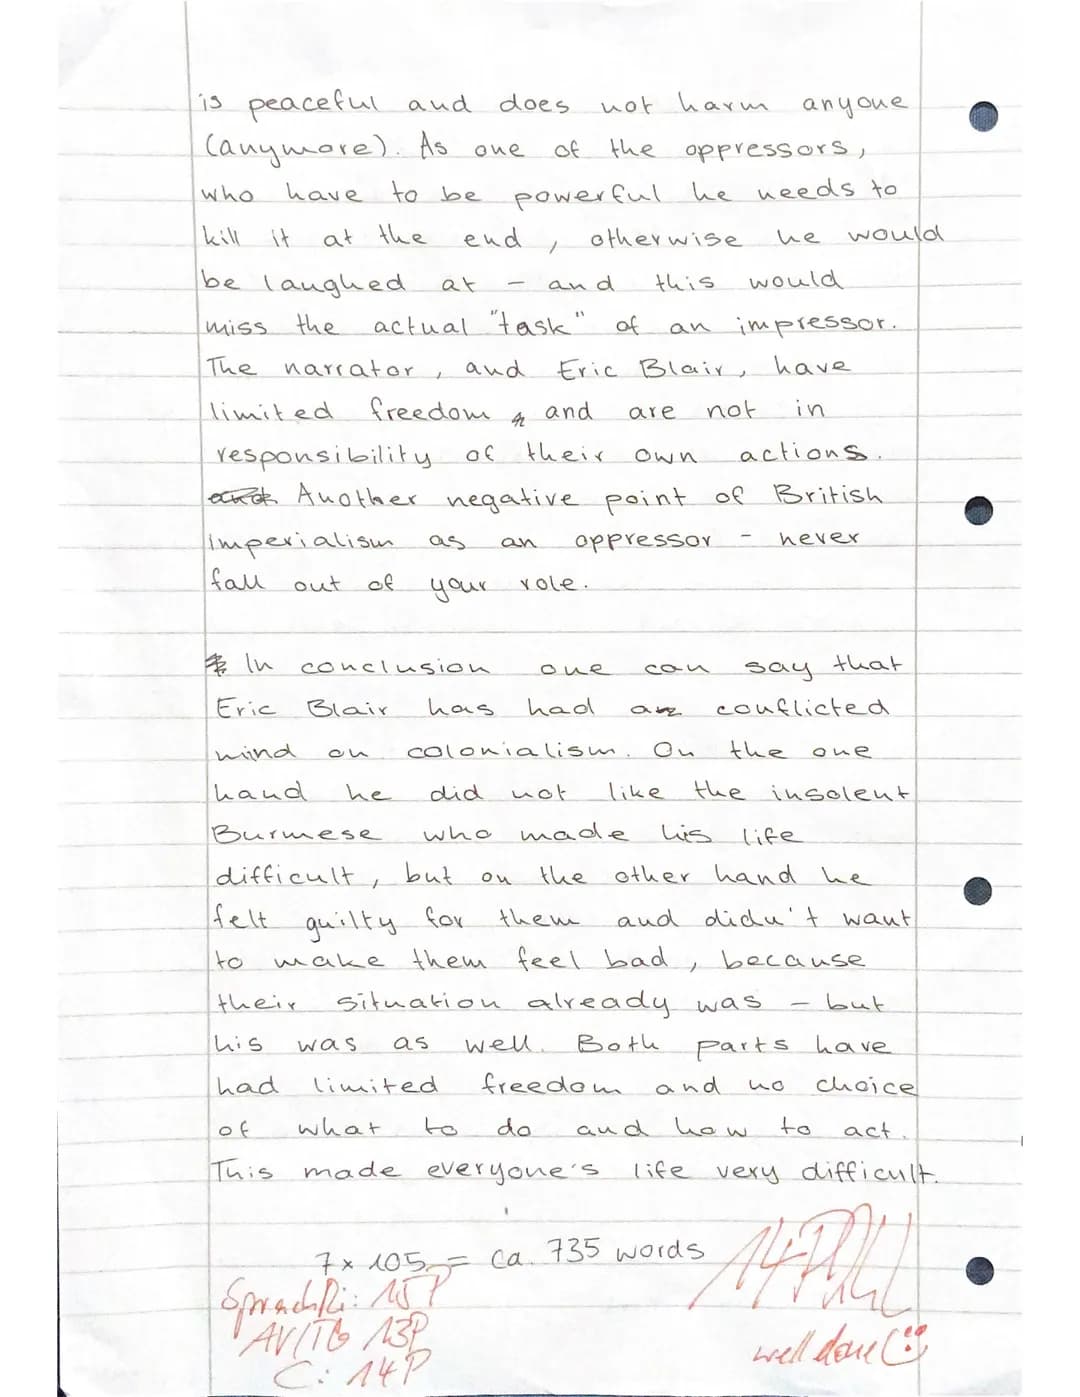 is peaceful and does not harm anyone
(anymore). As one of the oppressors,
who have to be powerful he needs to
kill it at the end, otherwise he would
be laughed at - and this would
miss the actual "task" of an impressor.
The narrator, and Eric Blair, have
limited freedom and are not in
responsibility of their own actions.
Another negative point of British
Imperialism as an oppressor - never
fall out of your role.
In conclusion one can say that
Eric Blair has had a conflicted
mind on colonialism. On the one
hand he did not like the insolent
Burmese who made his life
difficult, but on the other hand he
felt guilty for them and didn't want
to make them feel bad, because
their situation already was - but
his was as well. Both parts have
had limited freedom and no choice
of what to do and how to act.
This made everyone's life very difficult.
7x 105 = ca. 735 words
14P
SprachRi: 15P
AV/TG 13P
well done
C: 14P